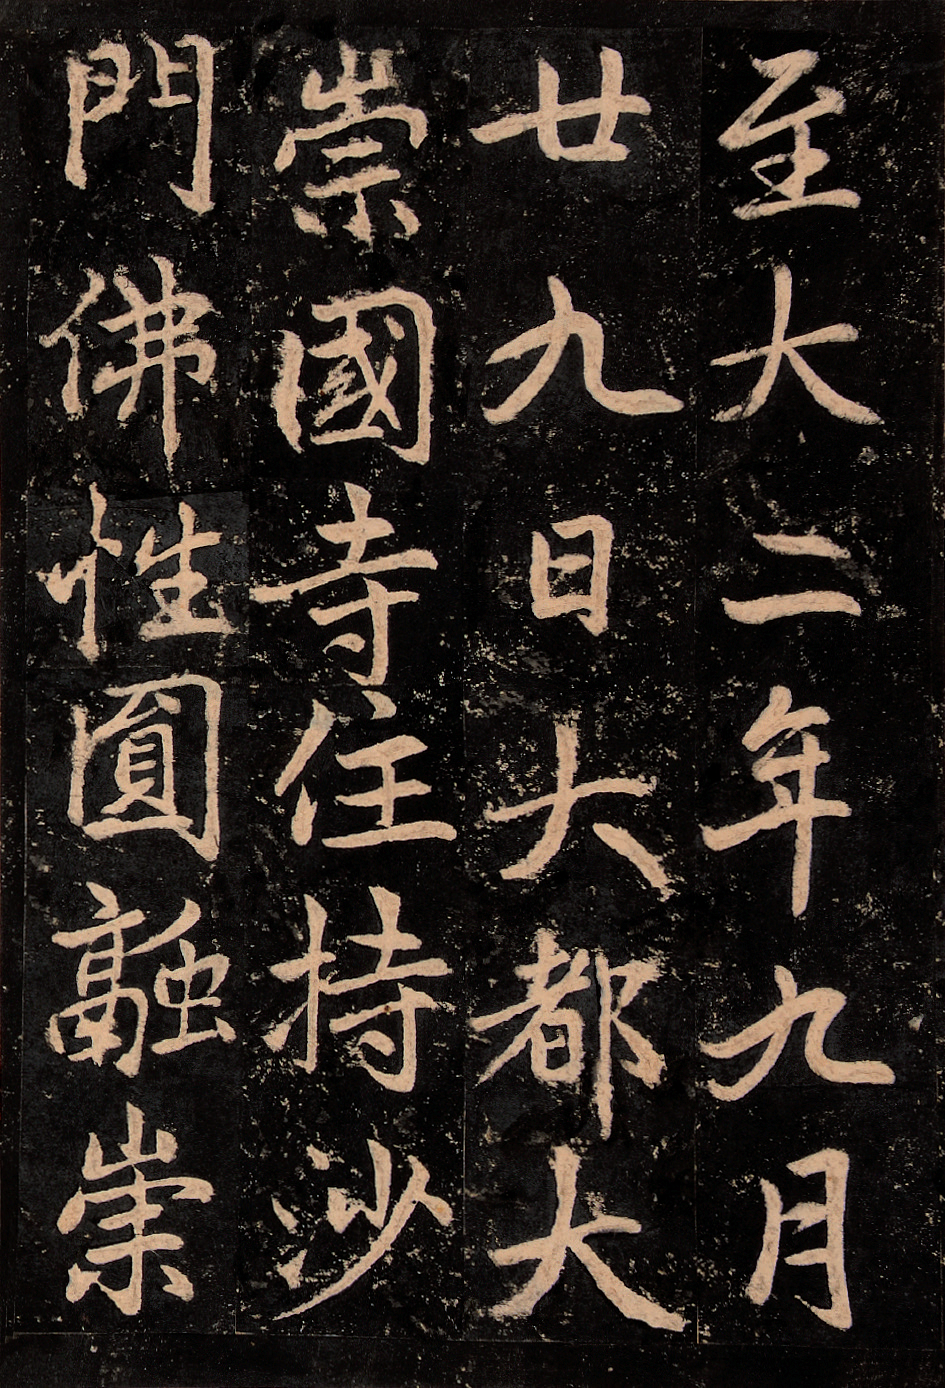 至大二年九月
廿九日大都大
崇國寺住持沙
門佛性圓融崇